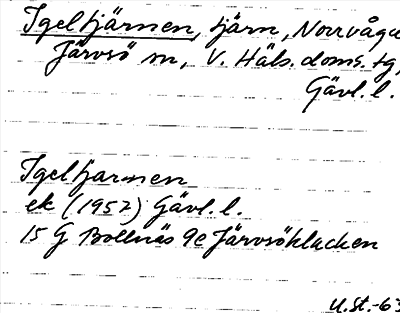 Igeltjärnen, tjärn, Norrvåga
Järvsö sn, V. Häls. doms. tg,
Gävl. l.
Igeltjarnen
ek (1957) Gävl. l.
15 G Bollnäs 9e Järvsöklacken
U.St.-63